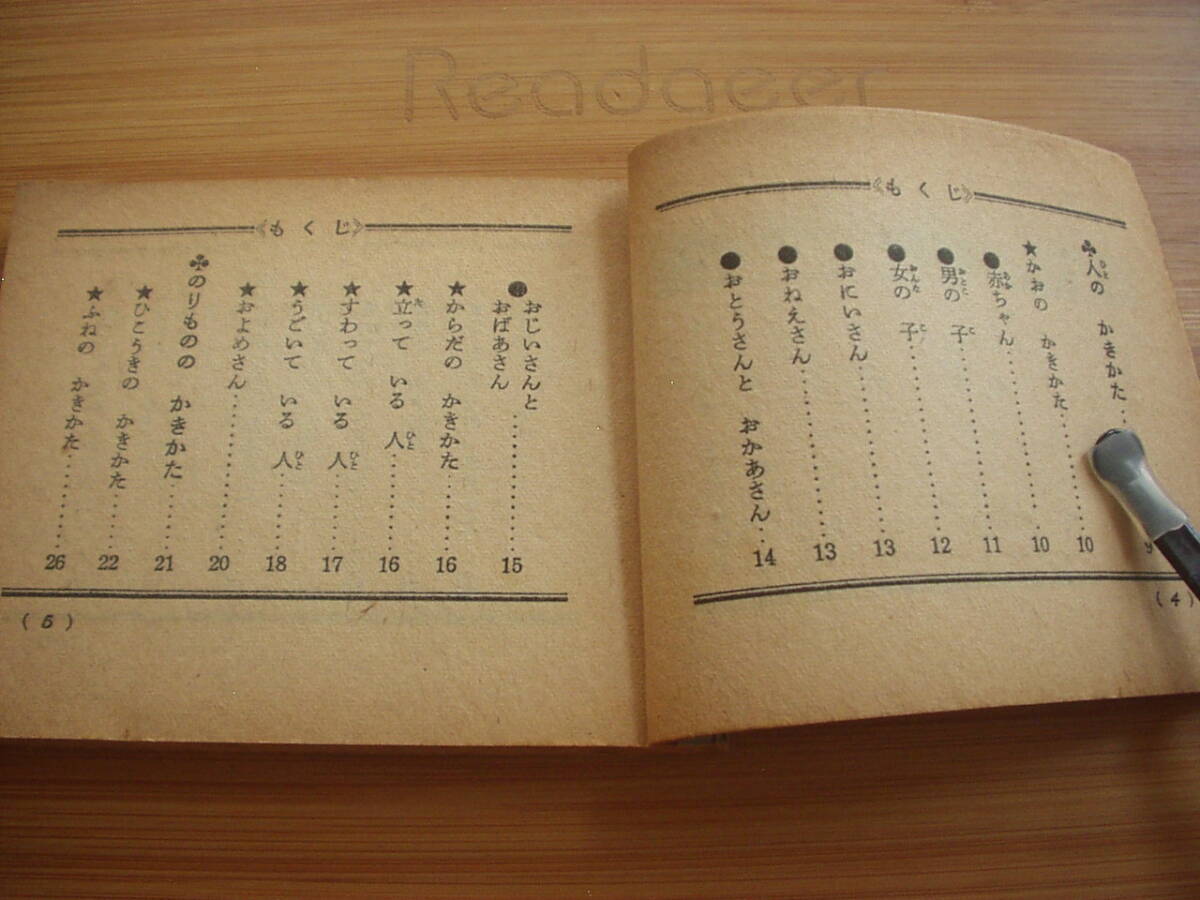 Readaeer
《もくじ》
♣人の かきかた……9
★かおの かきかた……10
●赤ちゃん……10
●男の 子……11
●女の 子……12
●おにいさん……13
●おねえさん……13
●おとうさんと おかあさん……14
(4)
《もくじ》
●おじいさんと
おばあさん……15
★からだの かきかた……16
★立って いる 人……16
★すわって いる 人……17
★うごいて いる 人……18
★およめさん……20
♣のりものの かきかた……21
★ひこうきの かきかた……22
★ふねの かきかた……26
(5)